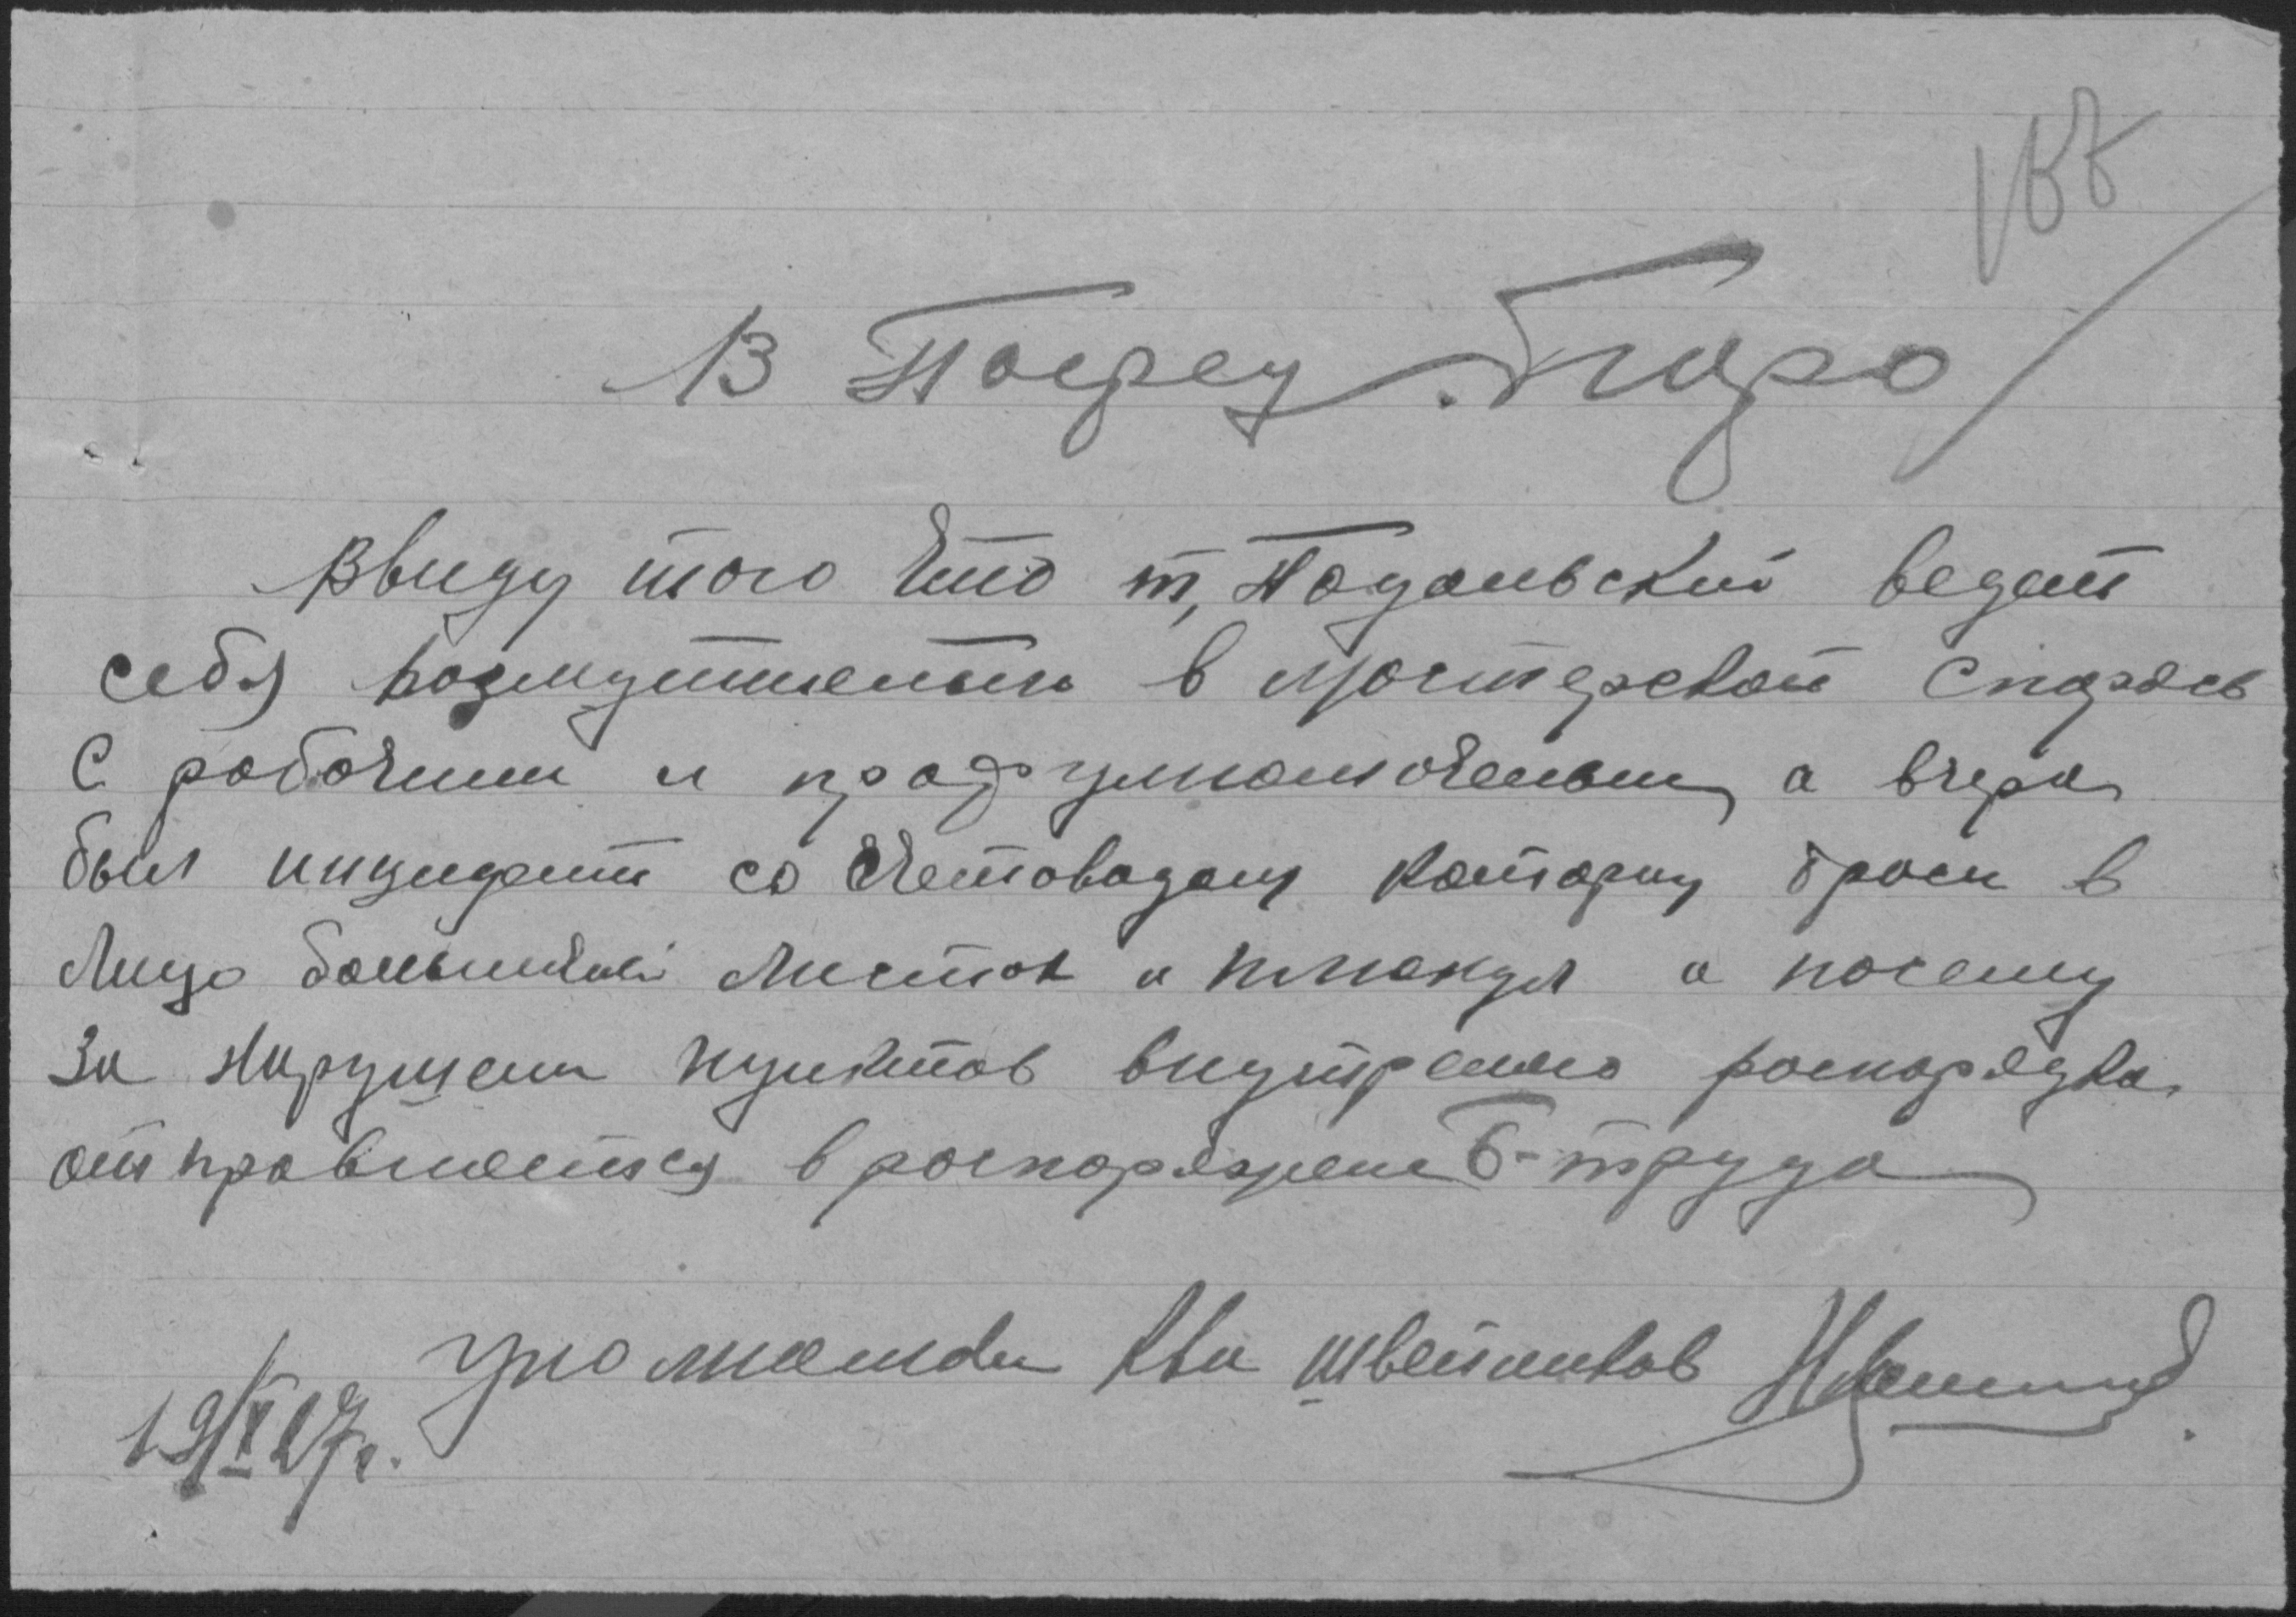 В Посред. Бюро
Ввиду того что т, Подольский ведет
себя возмутительно в мостерской спорось
с рабочими и профуполномоченым а вчера
был инцидент со счетоводом котораму броси в
лицо больничный листок и плюнул а посему
за нарушени пунктов внутренего роспорядка
отправляется в роспоряжени Б-труда
19/X 27г. швейников